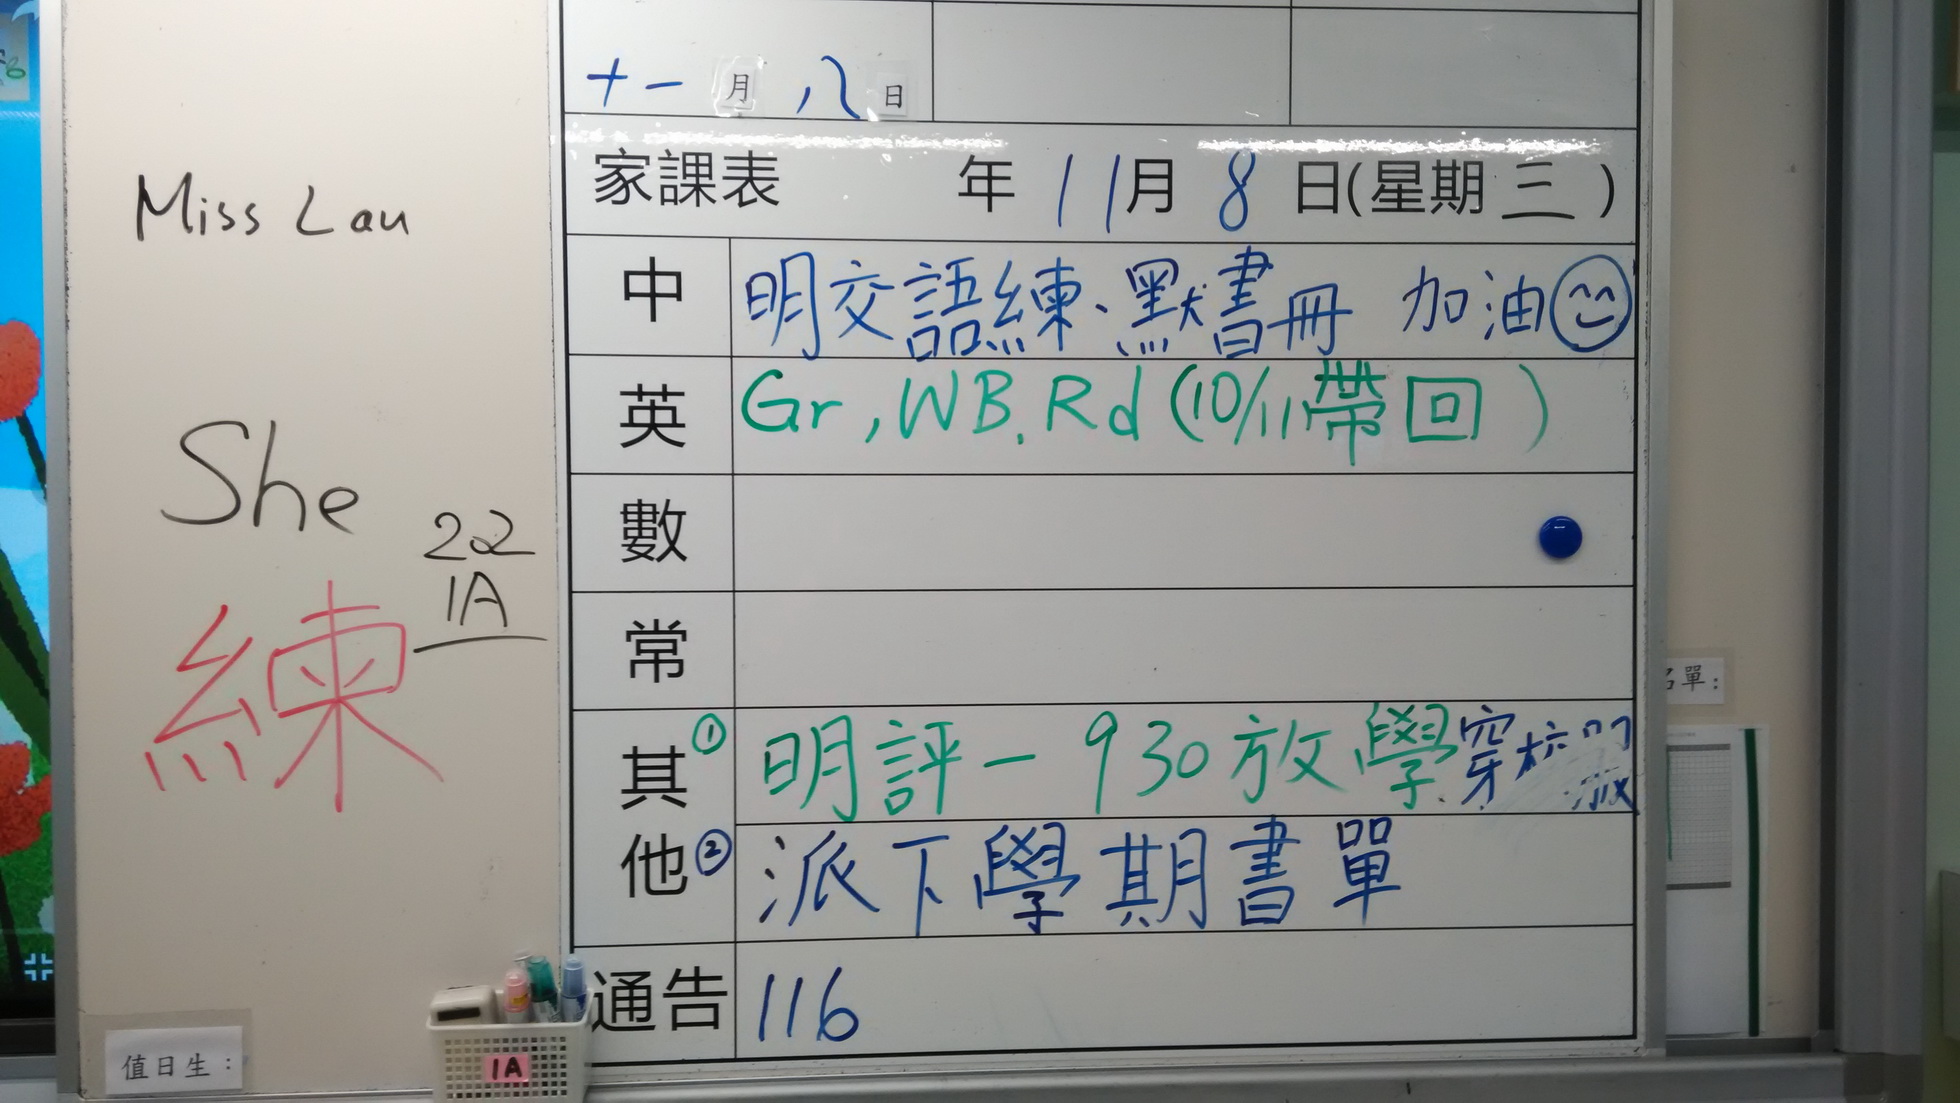 十一月 八日
家課表 年 11月 8 日(星期 三)
Miss Lau
中 明交語練、默書冊 加油
英 Gr, WB, Rd (10/11帶回)
She
數
22
1A
常
練
其 ① 明評一 930放學穿校服
他 ② 派下學期書單
名單:
通告 116
值日生:
1A